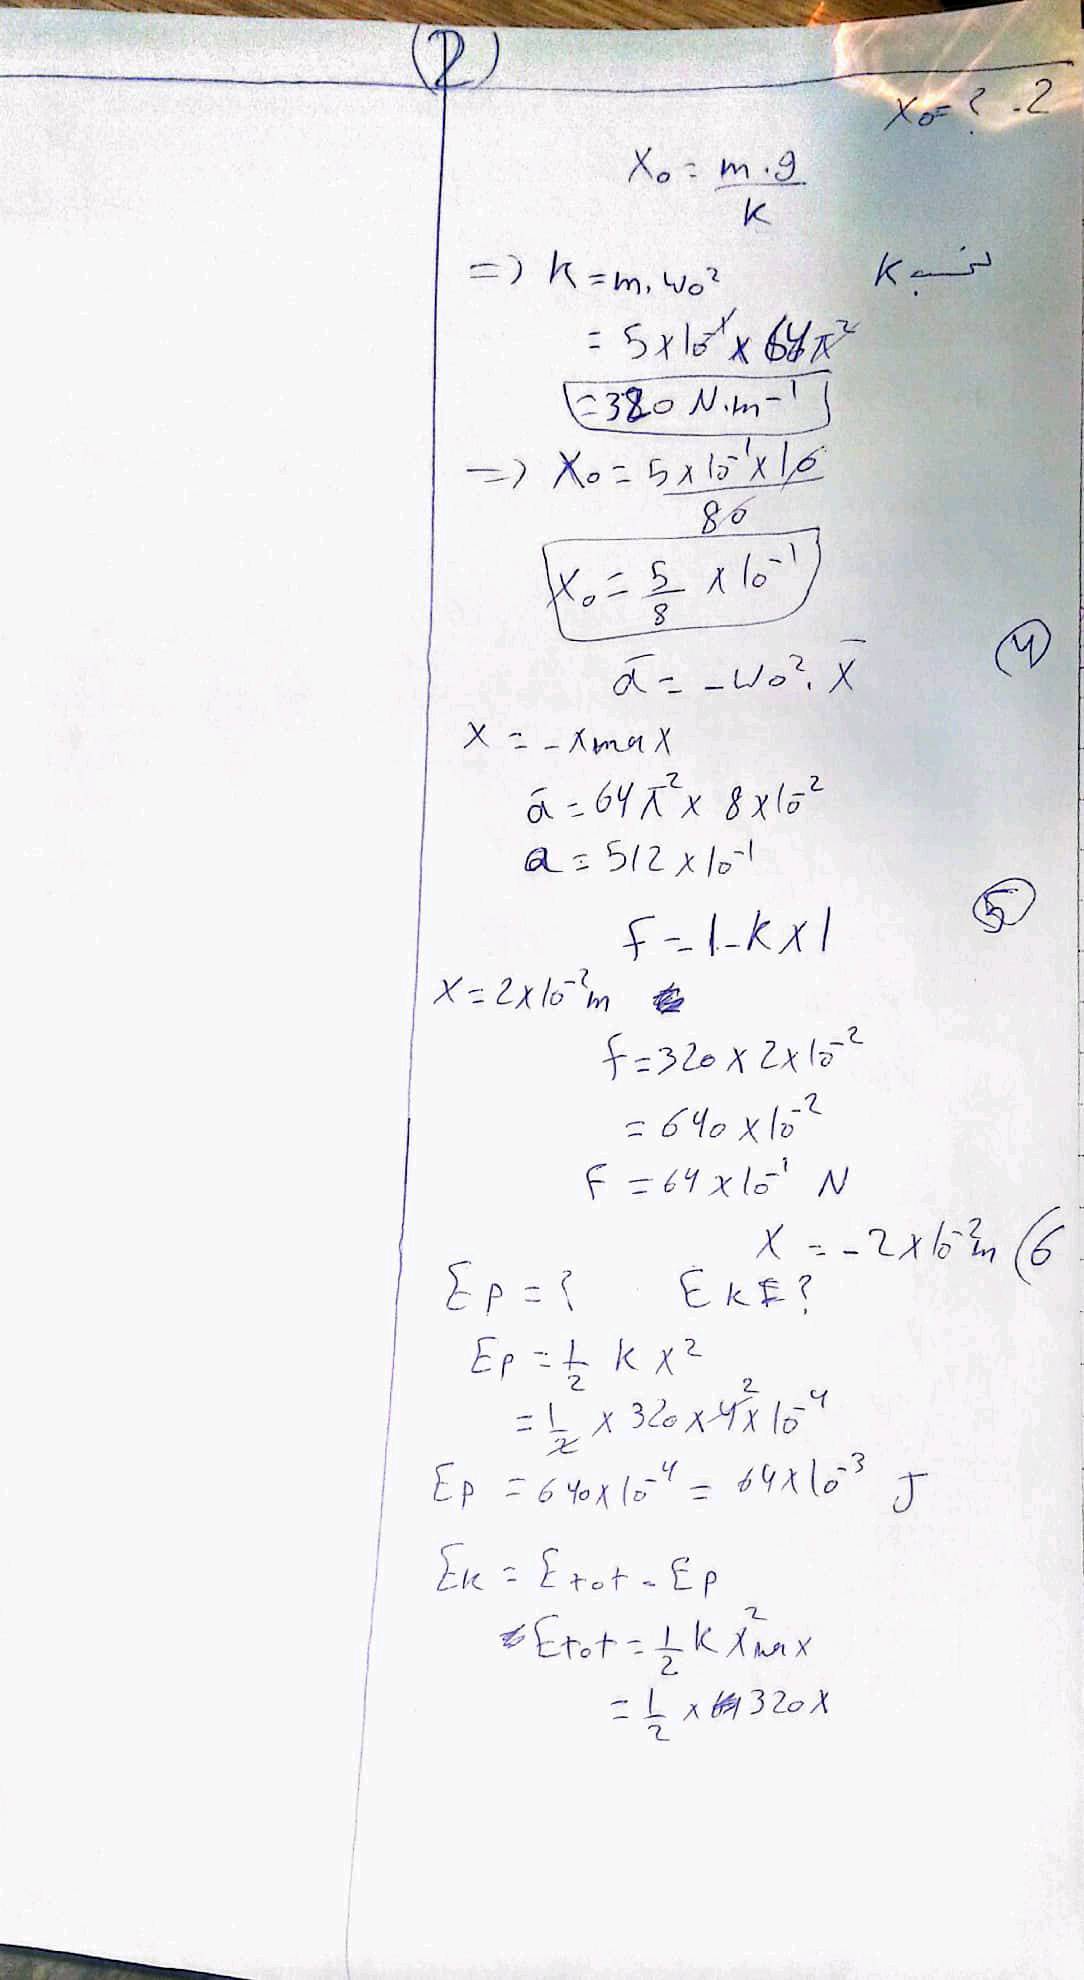 2
x₀ = ? .2
x₀ = m.g / k
=> k = m.ω₀² لنحسب k
= 5 x 10⁻¹ x 64 π²
= 320 N.m⁻¹
=> x₀ = 5 x 10⁻¹ x 10 / 80
x₀ = 5/8 x 10⁻¹
4
a̅ = - ω₀². x̅
x = - xmax
a̅ = 64 π² x 8 x 10⁻²
a = 512 x 10⁻¹
5
F = |-k x|
x = 2 x 10⁻² m
F = 320 x 2 x 10⁻²
= 640 x 10⁻²
F = 64 x 10⁻¹ N
x = - 2 x 10⁻² m (6
Ep = ? Ek = ?
Ep = 1/2 k x²
= 1/2 x 320 x 4² x 10⁻⁴
Ep = 640 x 10⁻⁴ = 64 x 10⁻³ J
Ek = Etot - Ep
Etot = 1/2 k x²max
= 1/2 x 320 x